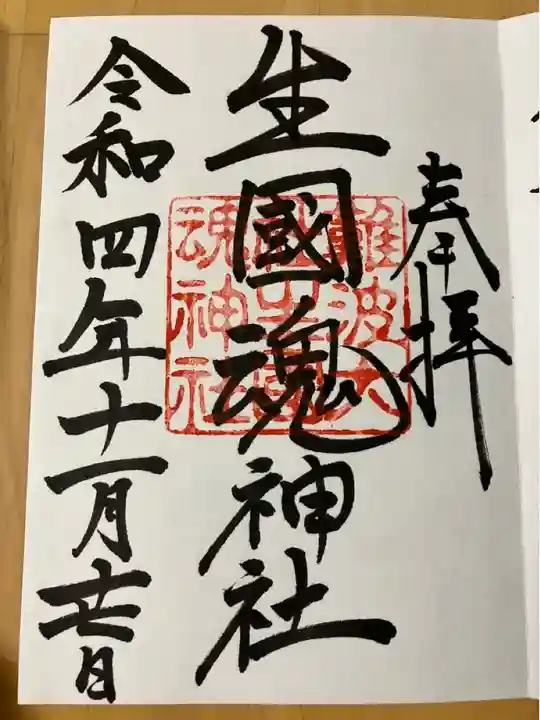 奉拝
生國魂神社
令和四年十一月廿七日
難波大
社生國
魂神社